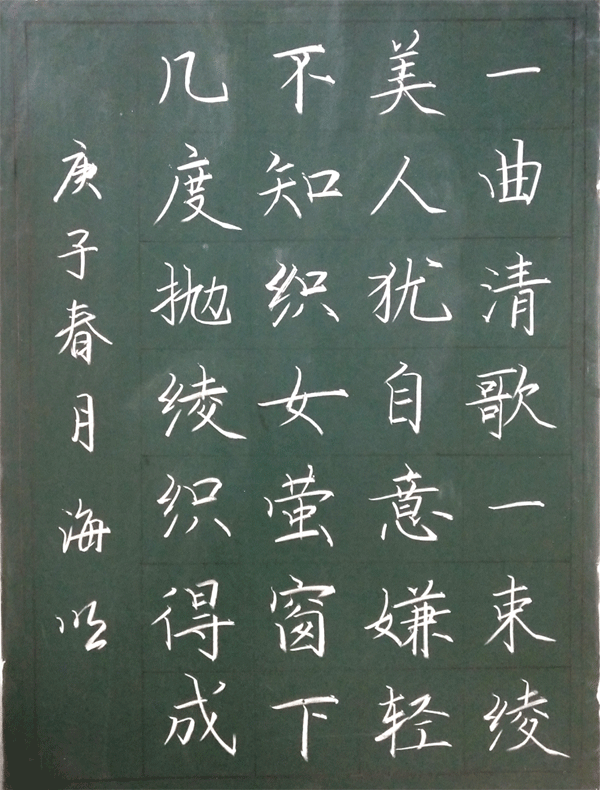 一曲清歌一束绫
美人犹自意嫌轻
不知织女萤窗下
几度抛绫织得成
庚子春月 海